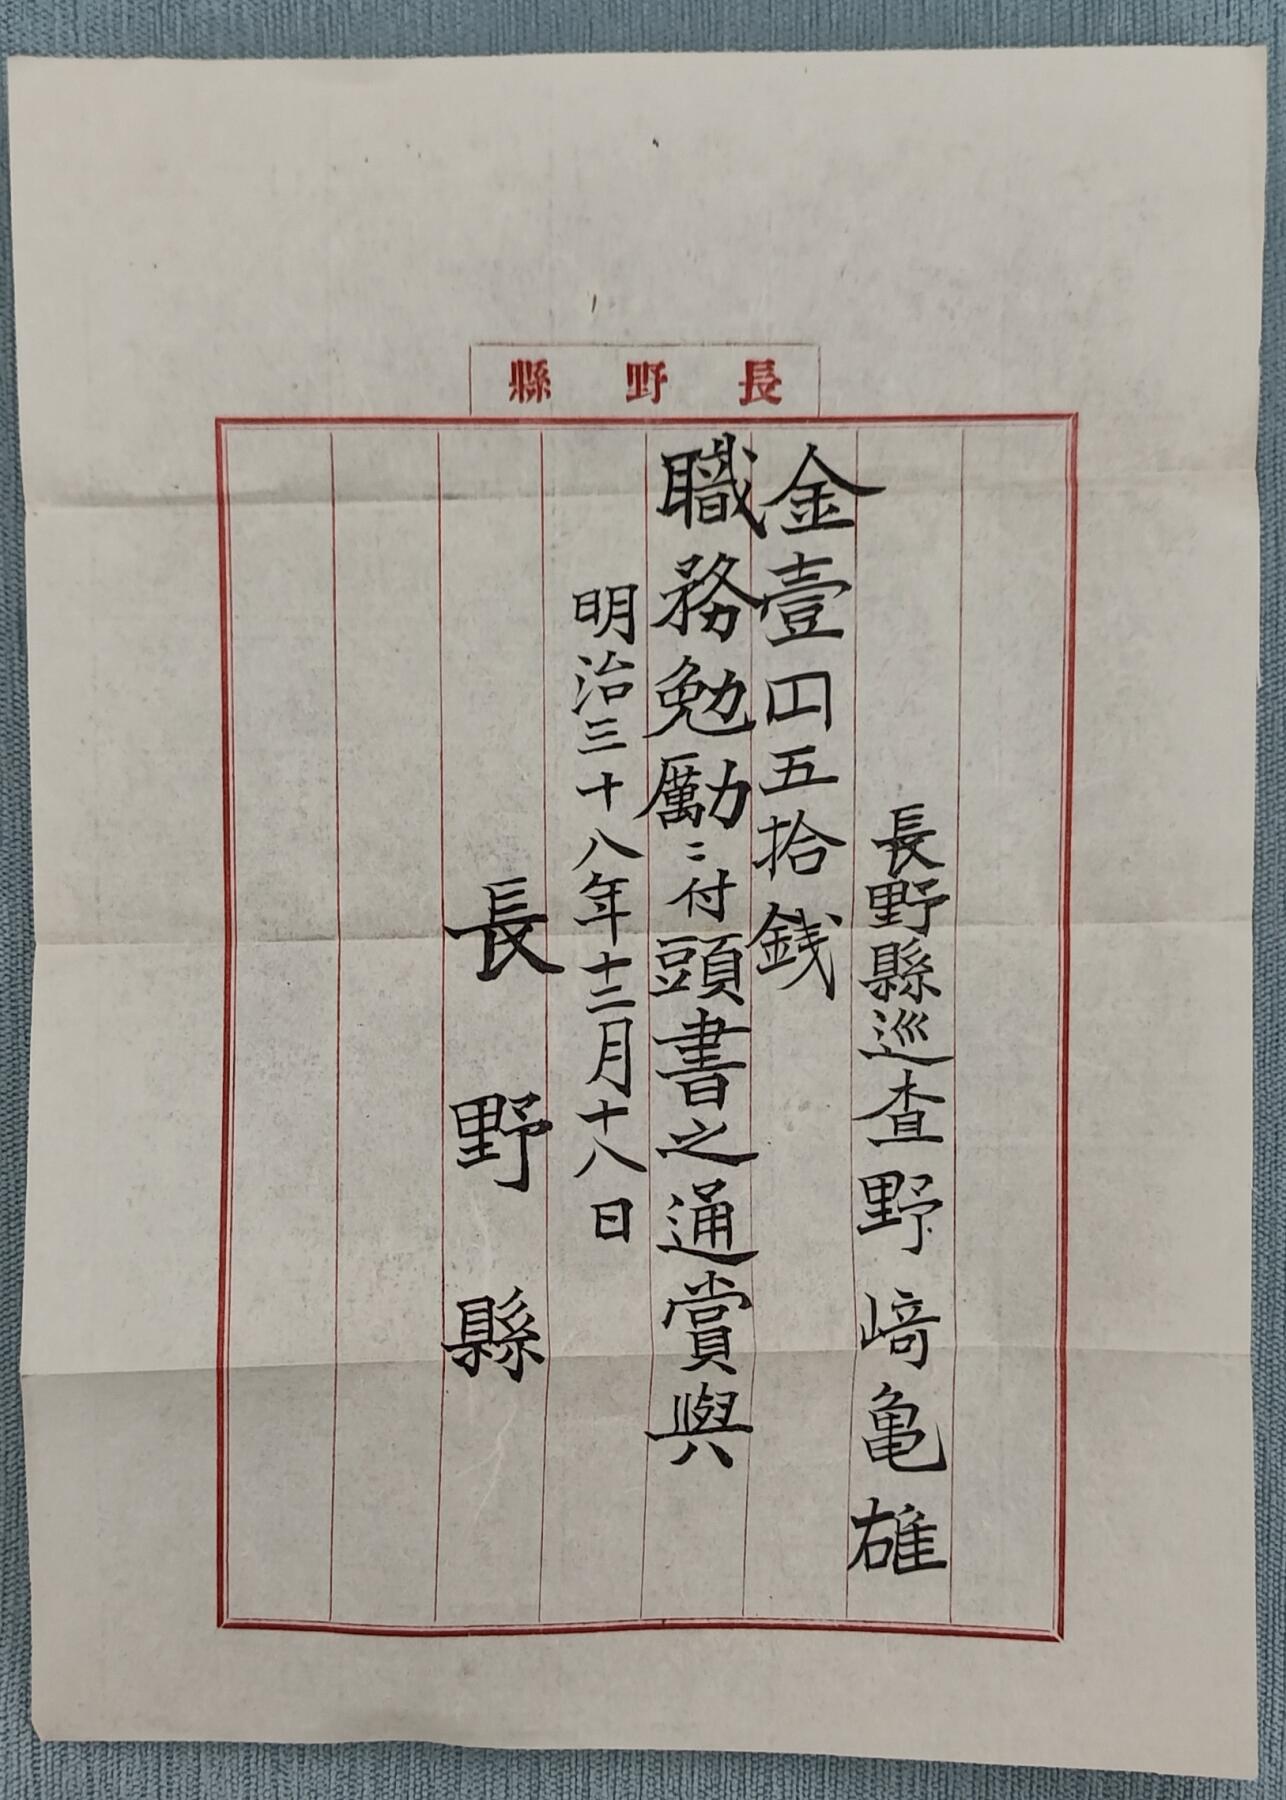 長野縣
長野縣巡査野﨑亀雄
金壹円五拾銭
職務勉励ニ付頭書之通賞與
明治三十八年十二月十八日
長野縣